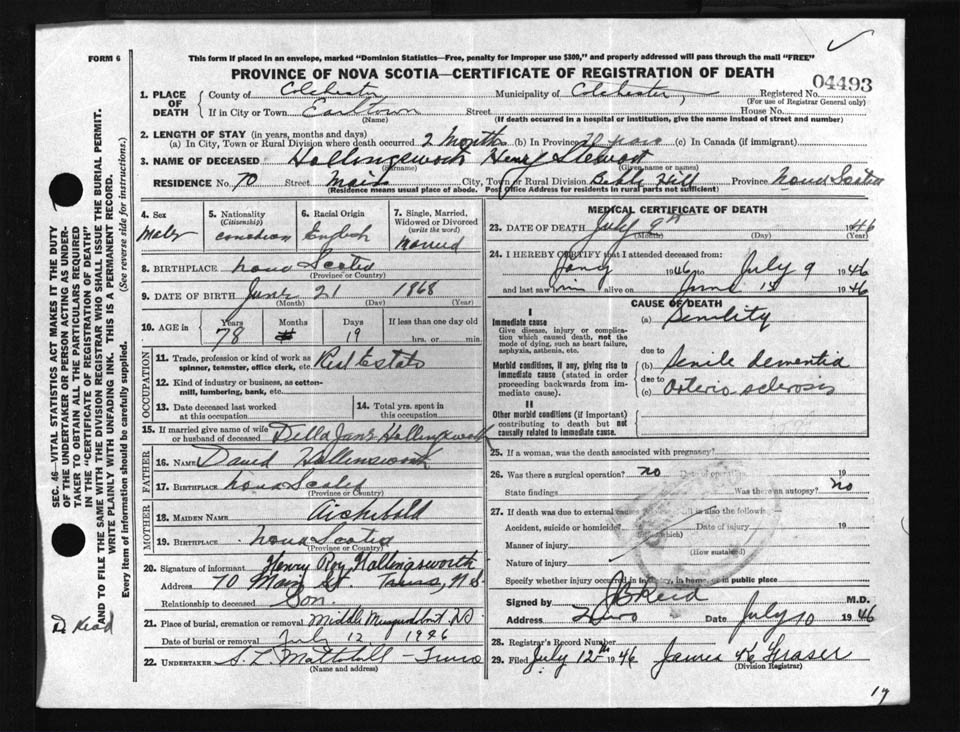 FORM 6
This form if placed in an envelope, marked "Dominion Statistics—Free, penalty for improper use $300," and properly addressed will pass through the mail "FREE"
PROVINCE OF NOVA SCOTIA—CERTIFICATE OF REGISTRATION OF DEATH
04493
1. PLACE OF DEATH County of Colchester Municipality of Colchester Registered No.
(For use of Registrar General only)
If in City or Town Earltown Street House No.
(Name) (If death occurred in a hospital or institution, give the name instead of street and number)
2. LENGTH OF STAY (in years, months and days)
(a) In City, Town or Rural Division where death occurred 2 Months (b) In Province (c) In Canada (if immigrant)
3. NAME OF DECEASED Hollingsworth Henry Stewart
(Surname) (Given name or names)
RESIDENCE No. 70 Street Main City, Town or Rural Division Bible Hill Province Nova Scotia
(Residence means usual place of abode. Post Office Address for residents in rural parts not sufficient)
4. Sex Male
5. Nationality (Citizenship) Canadian
6. Racial Origin English
7. Single, Married, Widowed or Divorced (write the word) Married
8. BIRTHPLACE Nova Scotia
(Province or Country)
9. DATE OF BIRTH June 21 1868
(Month) (Day) (Year)
10. AGE in Years Months Days If less than one day old
78 19 hrs. or min.
OCCUPATION
11. Trade, profession or kind of work as spinner, teamster, office clerk, etc. Real Estate
12. Kind of industry or business, as cotton-mill, lumbering, bank, etc.
13. Date deceased last worked at this occupation
14. Total yrs. spent in this occupation
15. If married give name of wife or husband of deceased Della Jane Hollingsworth
FATHER
16. NAME David Hollinsworth
17. BIRTHPLACE Nova Scotia
(Province or Country)
MOTHER
18. MAIDEN NAME Archibald
19. BIRTHPLACE Nova Scotia
(Province or Country)
20. Signature of informant Henry Roy Hollingsworth
Address 70 Main St. Truro, N.S.
Relationship to deceased Son.
21. Place of burial, cremation or removal Middle Musquodoboit N.S.
Date of burial or removal July 12 1946
22. UNDERTAKER S. L. Mattatall - Truro
(Name and address)
MEDICAL CERTIFICATE OF DEATH
23. DATE OF DEATH July 9th 1946
(Month) (Day) (Year)
24. I HEREBY CERTIFY that I attended deceased from:
1946 to July 9 1946
and last saw him alive on June 15 1946
CAUSE OF DEATH
I
Immediate cause
Give disease, injury or complication which caused death, not the mode of dying, such as heart failure, asphyxia, asthenia, etc.
(a) Senility
due to
Morbid conditions, if any, giving rise to immediate cause (stated in order proceeding backwards from immediate cause).
(b) Senile dementia
due to
(c) Arterio sclerosis
II
Other morbid conditions (if important) contributing to death but not causally related to immediate cause.
25. If a woman, was the death associated with pregnancy?
26. Was there a surgical operation? no Date of operation 19
State findings Was there an autopsy? no
27. If death was due to external causes fill in also the following:
Accident, suicide or homicide? Date of injury 19
(State which)
Manner of injury
(How sustained)
Nature of injury
Specify whether injury occurred in industry, in home, or in public place
Signed by J B Reid M.D.
Address Truro Date July 10 1946
28. Registrar's Record Number
29. Filed July 12th 1946 James K Fraser
(Division Registrar)
SEC. 46—VITAL STATISTICS ACT MAKES IT THE DUTY
OF THE UNDERTAKER OR PERSON ACTING AS UNDER-
TAKER TO OBTAIN ALL THE PARTICULARS REQUIRED
IN THE "CERTIFICATE OF REGISTRATION OF DEATH"
AND TO FILE THE SAME WITH THE DIVISION REGISTRAR WHO SHALL ISSUE THE BURIAL PERMIT.
WRITE PLAINLY WITH UNFADING INK. THIS IS A PERMANENT RECORD.
Every item of information should be carefully supplied. (See reverse side for instructions.)
Dr Read
19